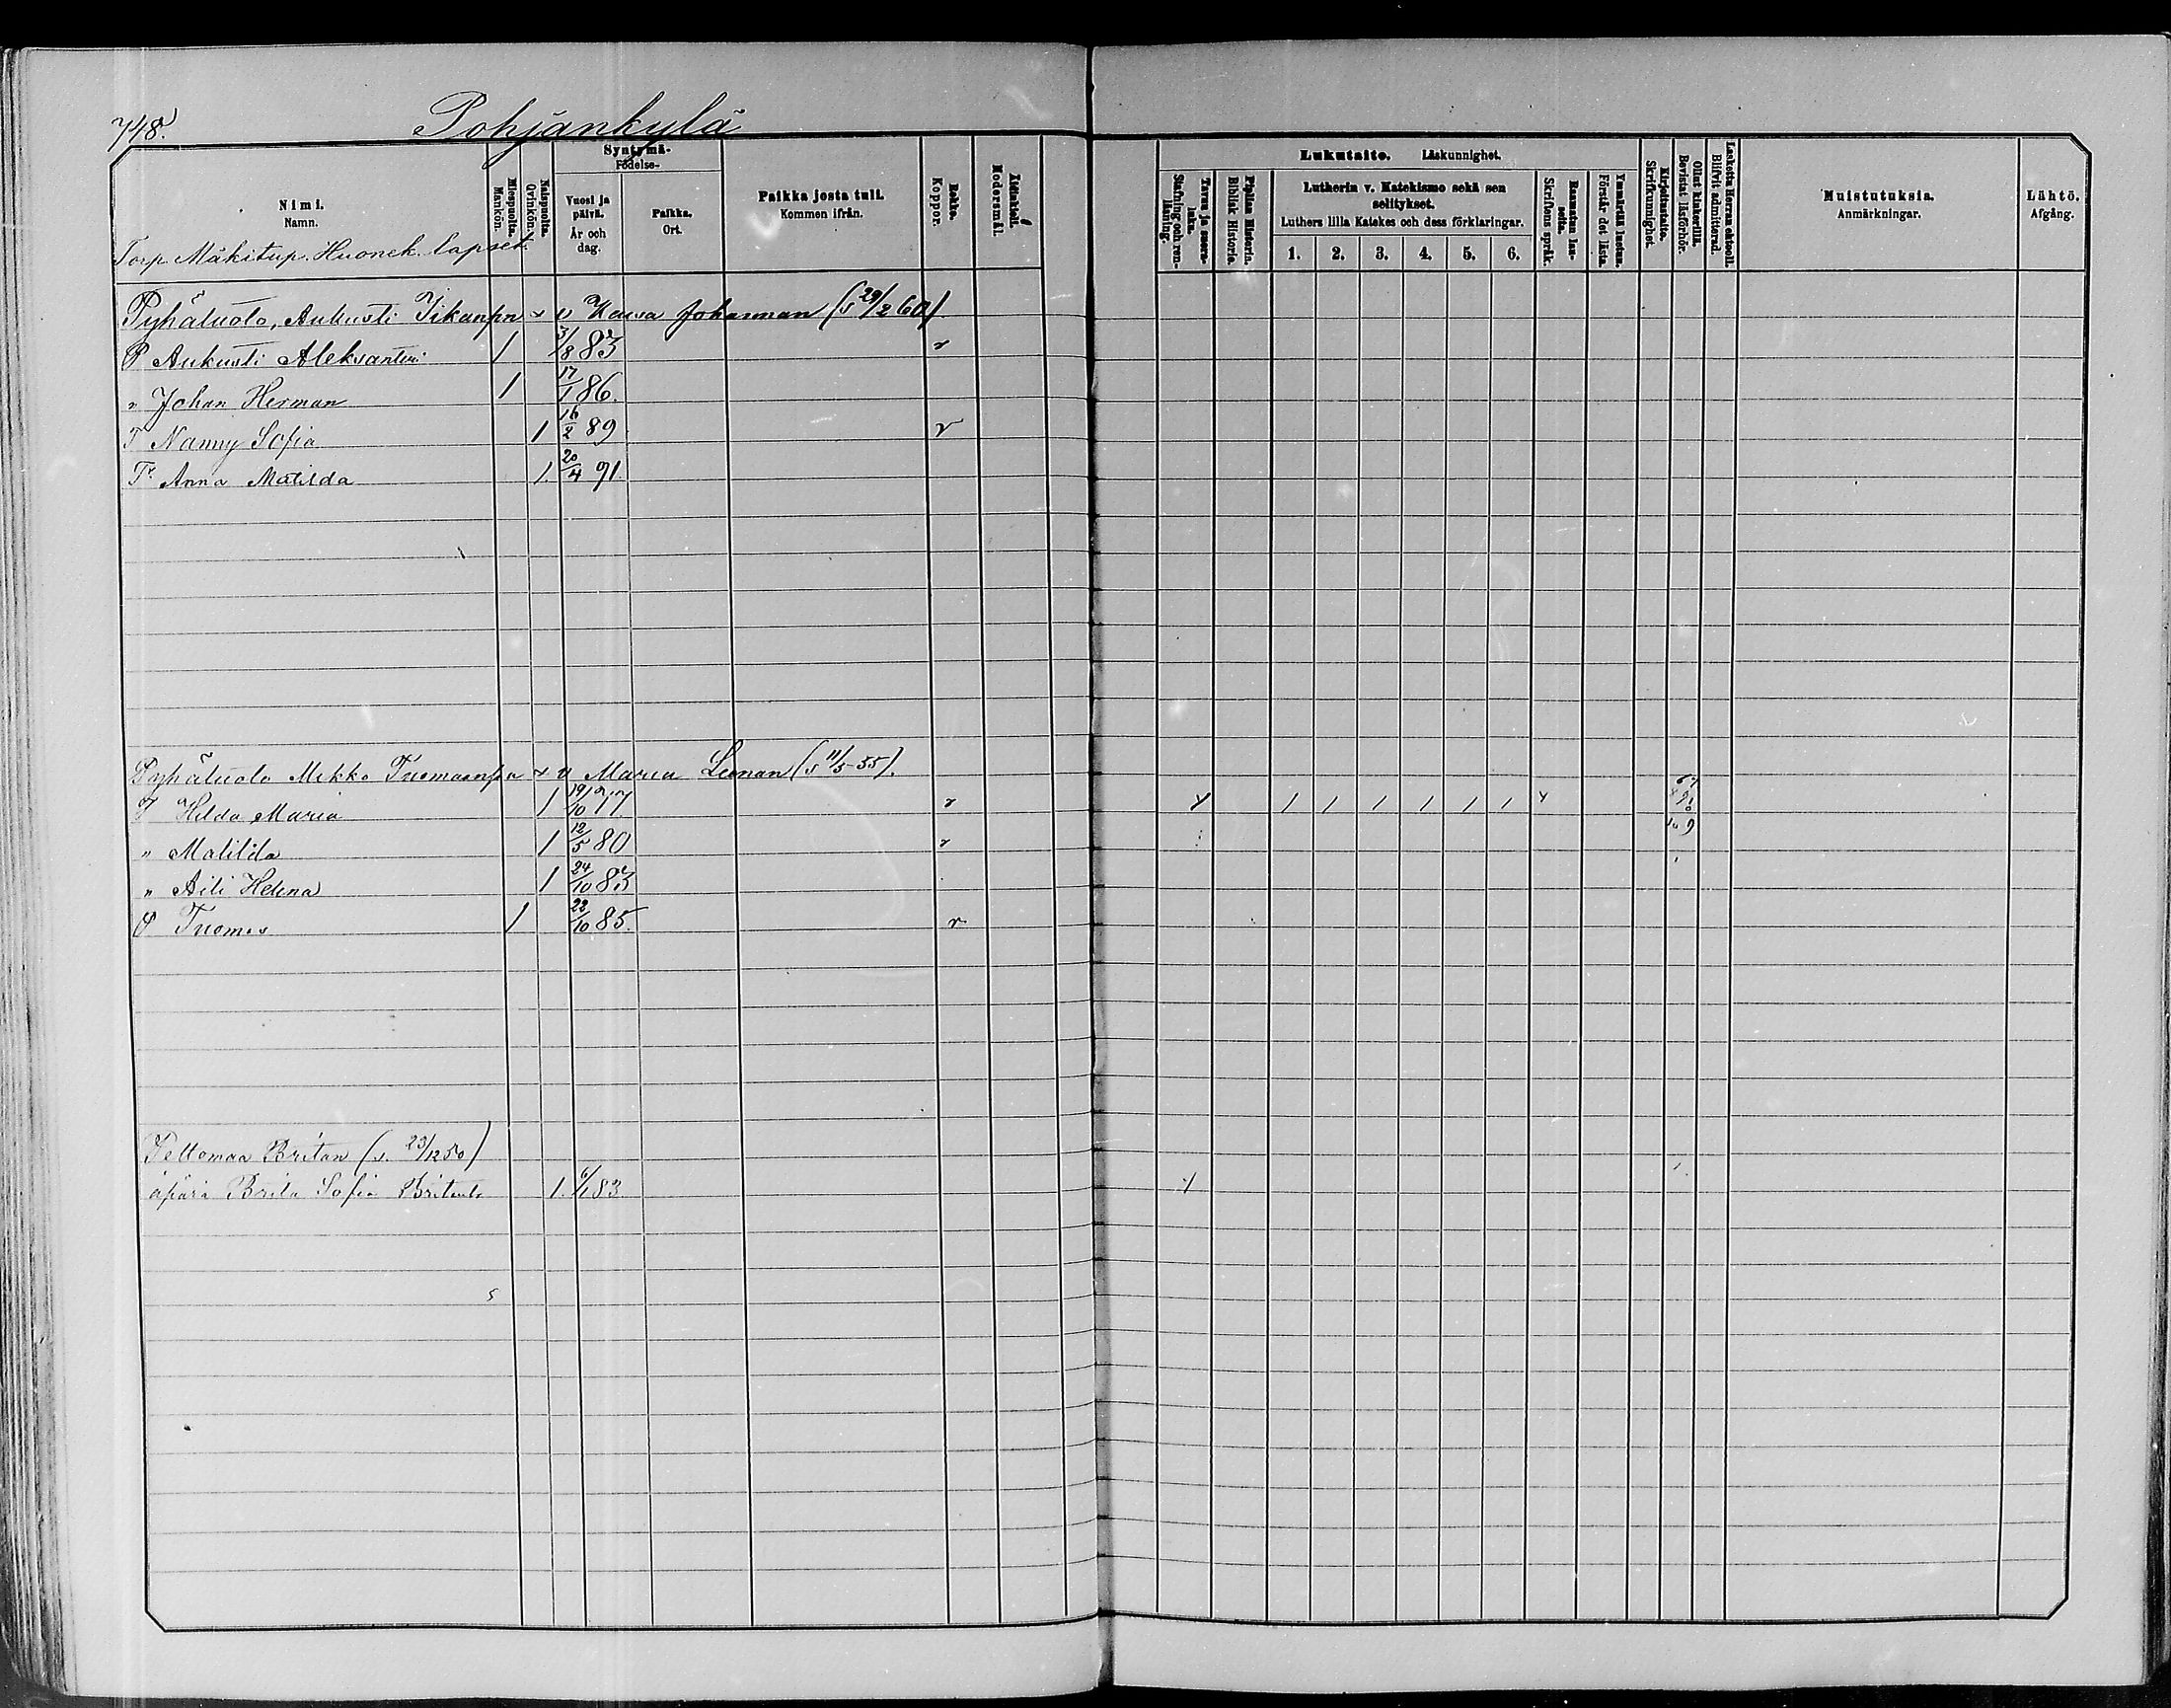 748.
Pohjankylä
Nimi.
Namn.
Miespuolia.
Mankön.
Naispuolia.
Qvinkön.
Syntymä-
Födelse-
Vuosi ja päivä.
År och dag.
Paikka.
Ort.
Paikka josta tuli.
Kommen ifrån.
Rokko.
Koppor.
Äidinkieli.
Modersmål.
Lukutaito. Läskunnighet.
Tavuu ja suora-luku.
Stafning och ren-läsning.
Piplian Historia.
Biblisk Historie.
Lutherin v. Katekismo sekä sen selitykset.
Luthers lilla Katekes och dess förklaringar.
1. 2. 3. 4. 5. 6.
Raamatun lau-seita.
Skriftens språk.
Ymmärtää luetun.
Förstår det lästa.
Kirjoitustaito.
Skrifkunnighet.
Ollut kinkerillä.
Bevistat läsförhör.
Laskettu Herran ehtooll.
Blifvit admitterad.
Muistutuksia.
Anmärkningar.
Lähtö.
Afgång.
Torp. Mäkitup. Huonek. lapset.
Pyhäluoto, Aukusti Iikanpn x v Kaisa Johannan (s 29/2 60)
P Aukusti Aleksanteri 1 3/8 83 r
" Johan Herman 1 17/1 86.
T Nanny Sofia 1 16/2 89 r
T. Anna Matilda 1. 20/4 91.
Pyhäluoto Mikko Tuomaanpn x v Maria Leenan (s 11/5 55).
T Hilda Maria 1 19/10 77 r Y 1 1 1 1 1 1 Y
" Matilda 1 12/5 80 r
" Aili Helena 1 24/10 83
P Tuomas 1 22/10 85. r
Peltomaa Britan (s. 23/12 50)
äpärä Brita Sofia 1. 6/1 83 Y